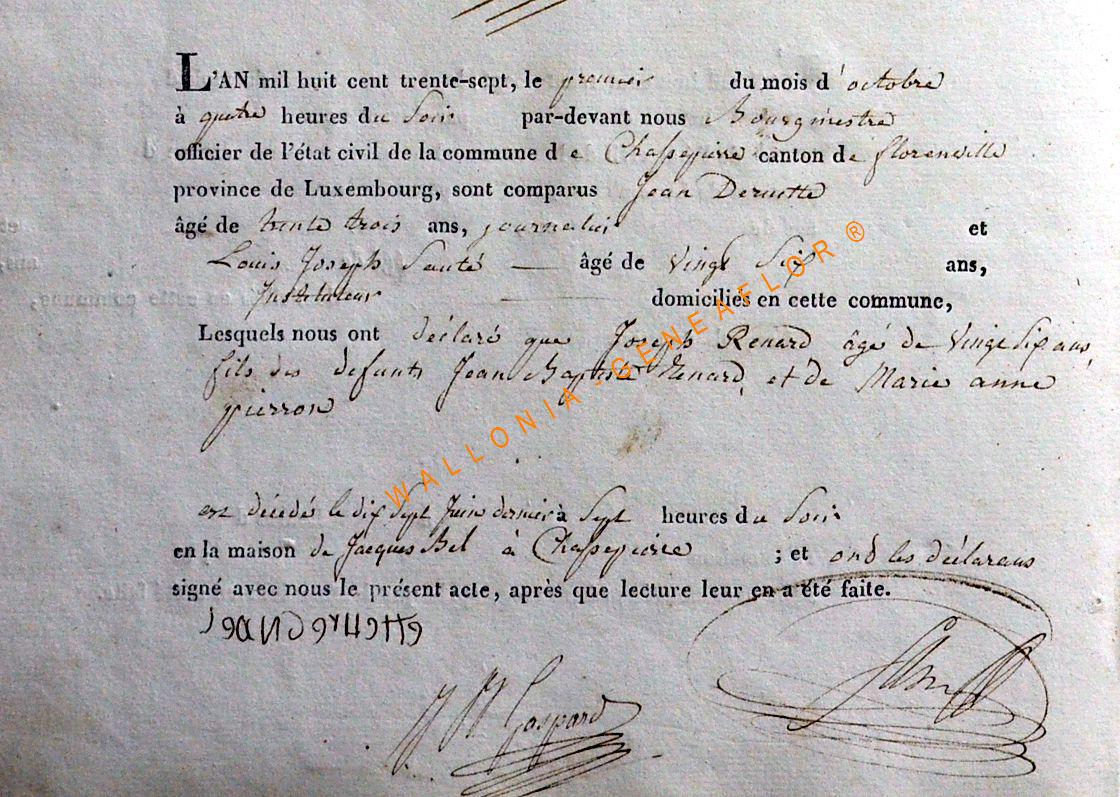 L'AN mil huit cent trente-sept, le premier du mois d'octobre
à quatre heures du Soir par-devant nous Bourgmestre
officier de l'état civil de la commune de Chassepierre canton de florenville
province de Luxembourg, sont comparus Jean Deruette
âgé de trente trois ans, journalier et
Louis Joseph Santé âgé de Vingt Six ans,
Instituteur domiciliés en cette commune,
Lesquels nous ont déclaré que Joseph Renard âgé de Vingt Six ans,
fils des defunts Jean Baptiste Renard et de Marie anne
pierron
est décédé le dix Sept Juin dernier à Sept heures du Soir
en la maison de Jacques Bel à Chassepierre ; et ond les déclarans
signé avec nous le présent acte, après que lecture leur en a été faite.
Gaspard
WALLONIA-GENEAFLOR ®